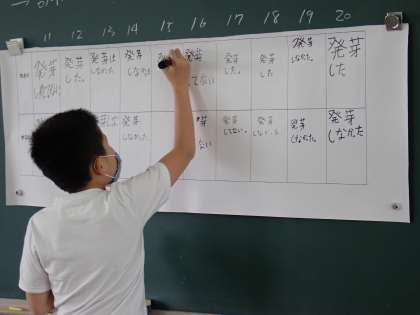 11 12 13 14 15 16 17 18 19 20
発芽
しなかった
発芽
した。
発芽は
しなかった
発芽
しなかった
発芽
てない
発芽
した。
発芽
した
発芽
しなかった。
発芽
した
発芽
しなかった
芽
ない
発芽
してない。
発芽
しなかった
発芽
しなかった。
発芽
しなかた